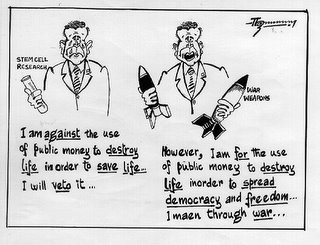 STEM CELL
RESEARCH
I am against the use
of public money to destroy
life in order to save life...
I will veto it...
WAR
WEAPONS
However, I am for the use
of public money to destroy
life inorder to spread
democracy and freedom...
I maen through war...